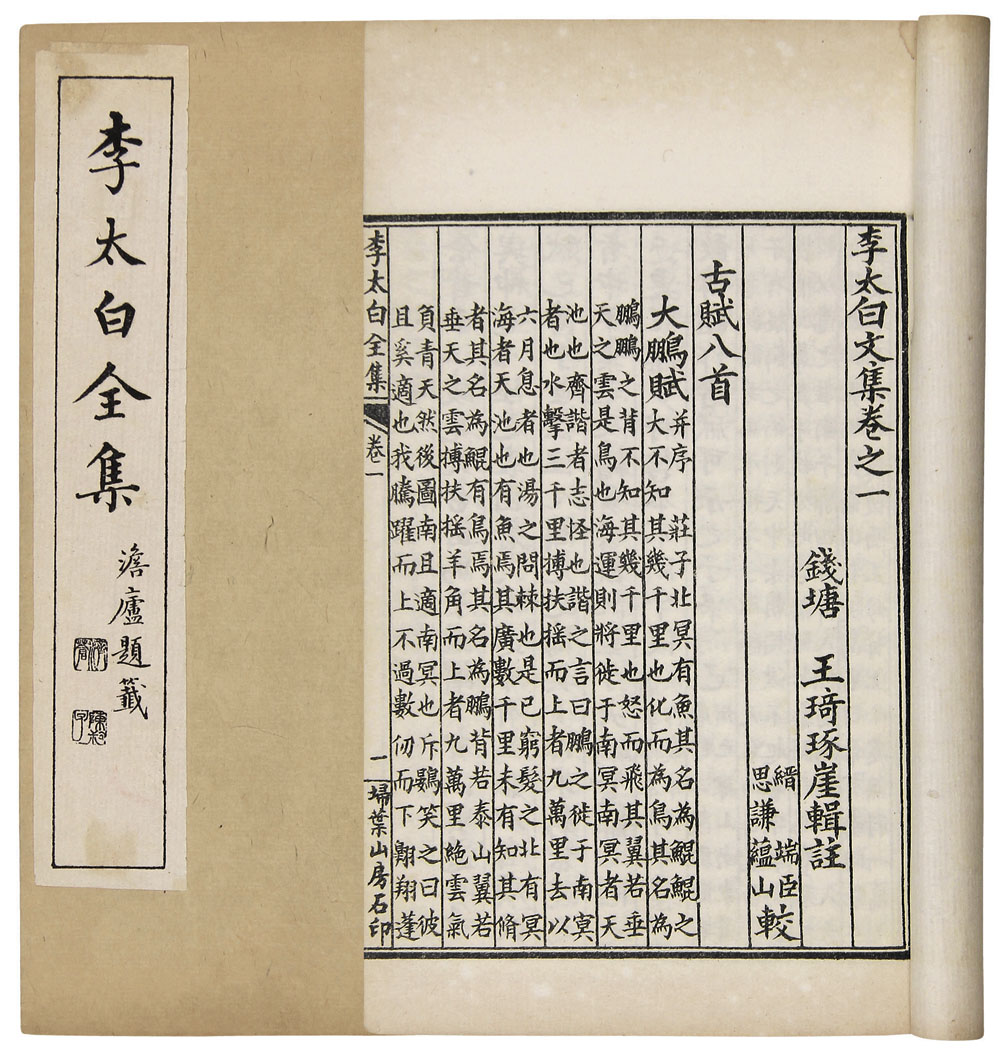 李太白全集
澹廬題籤
李太白文集卷之一
錢塘 王琦琢崖輯註
縉 端臣
思謙蘊山 較
古賦八首
大鵬賦 并序 莊子北冥有魚其名為鯤鯤之
大不知其幾千里也化而為鳥其名為
鵬鵬之背不知其幾千里也怒而飛其翼若垂
天之雲是鳥也海運則將徙于南冥南冥者天
池也齊諧者志怪也諧之言曰鵬之徙于南冥
者也水擊三千里摶扶搖而上者九萬里去以
六月息者也湯之問棘也是已窮髮之北有冥
海者天池也有魚焉其廣數千里未有知其脩
者其名為鯤有鳥焉其名為鵬背若泰山翼若
垂天之雲摶扶搖羊角而上者九萬里絶雲氣
負青天然後圖南且適南冥也斥鷃笑之曰彼
且奚適也我騰躍而上不過數仞而下翺翔蓬
李太白全集 卷一 一 埽葉山房石印